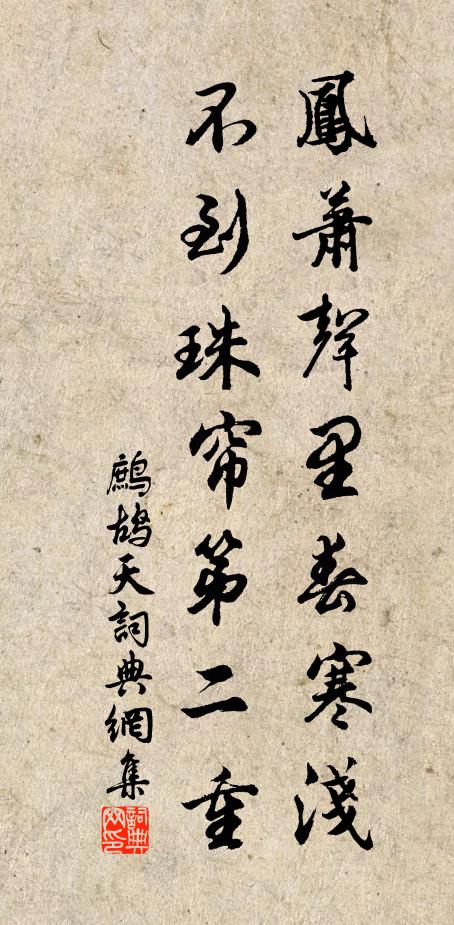 鳳蕭聲里春寒淺
不到珠帘第二重
鷓鴣天詞典網集
詞典網印